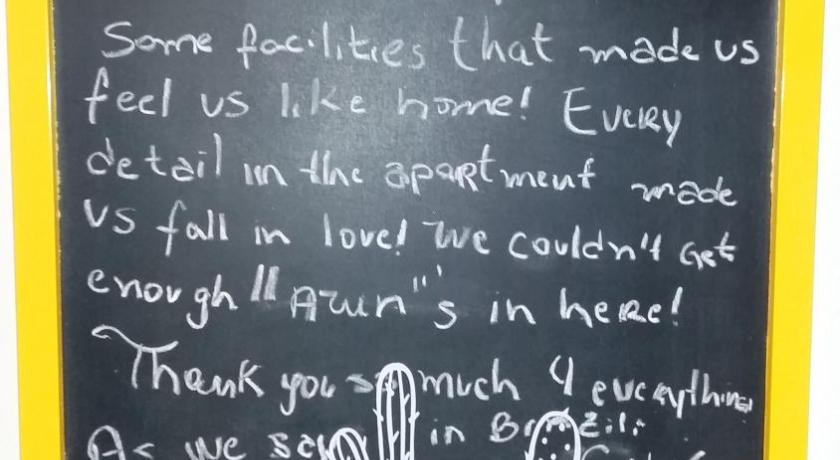 Some facilities that made us
feel us like home! Every
detail in the apartment made
us fall in love! We couldn't get
enough "Azun"'s in here!
Thank you so much 4 everything
As we say in Brazil: